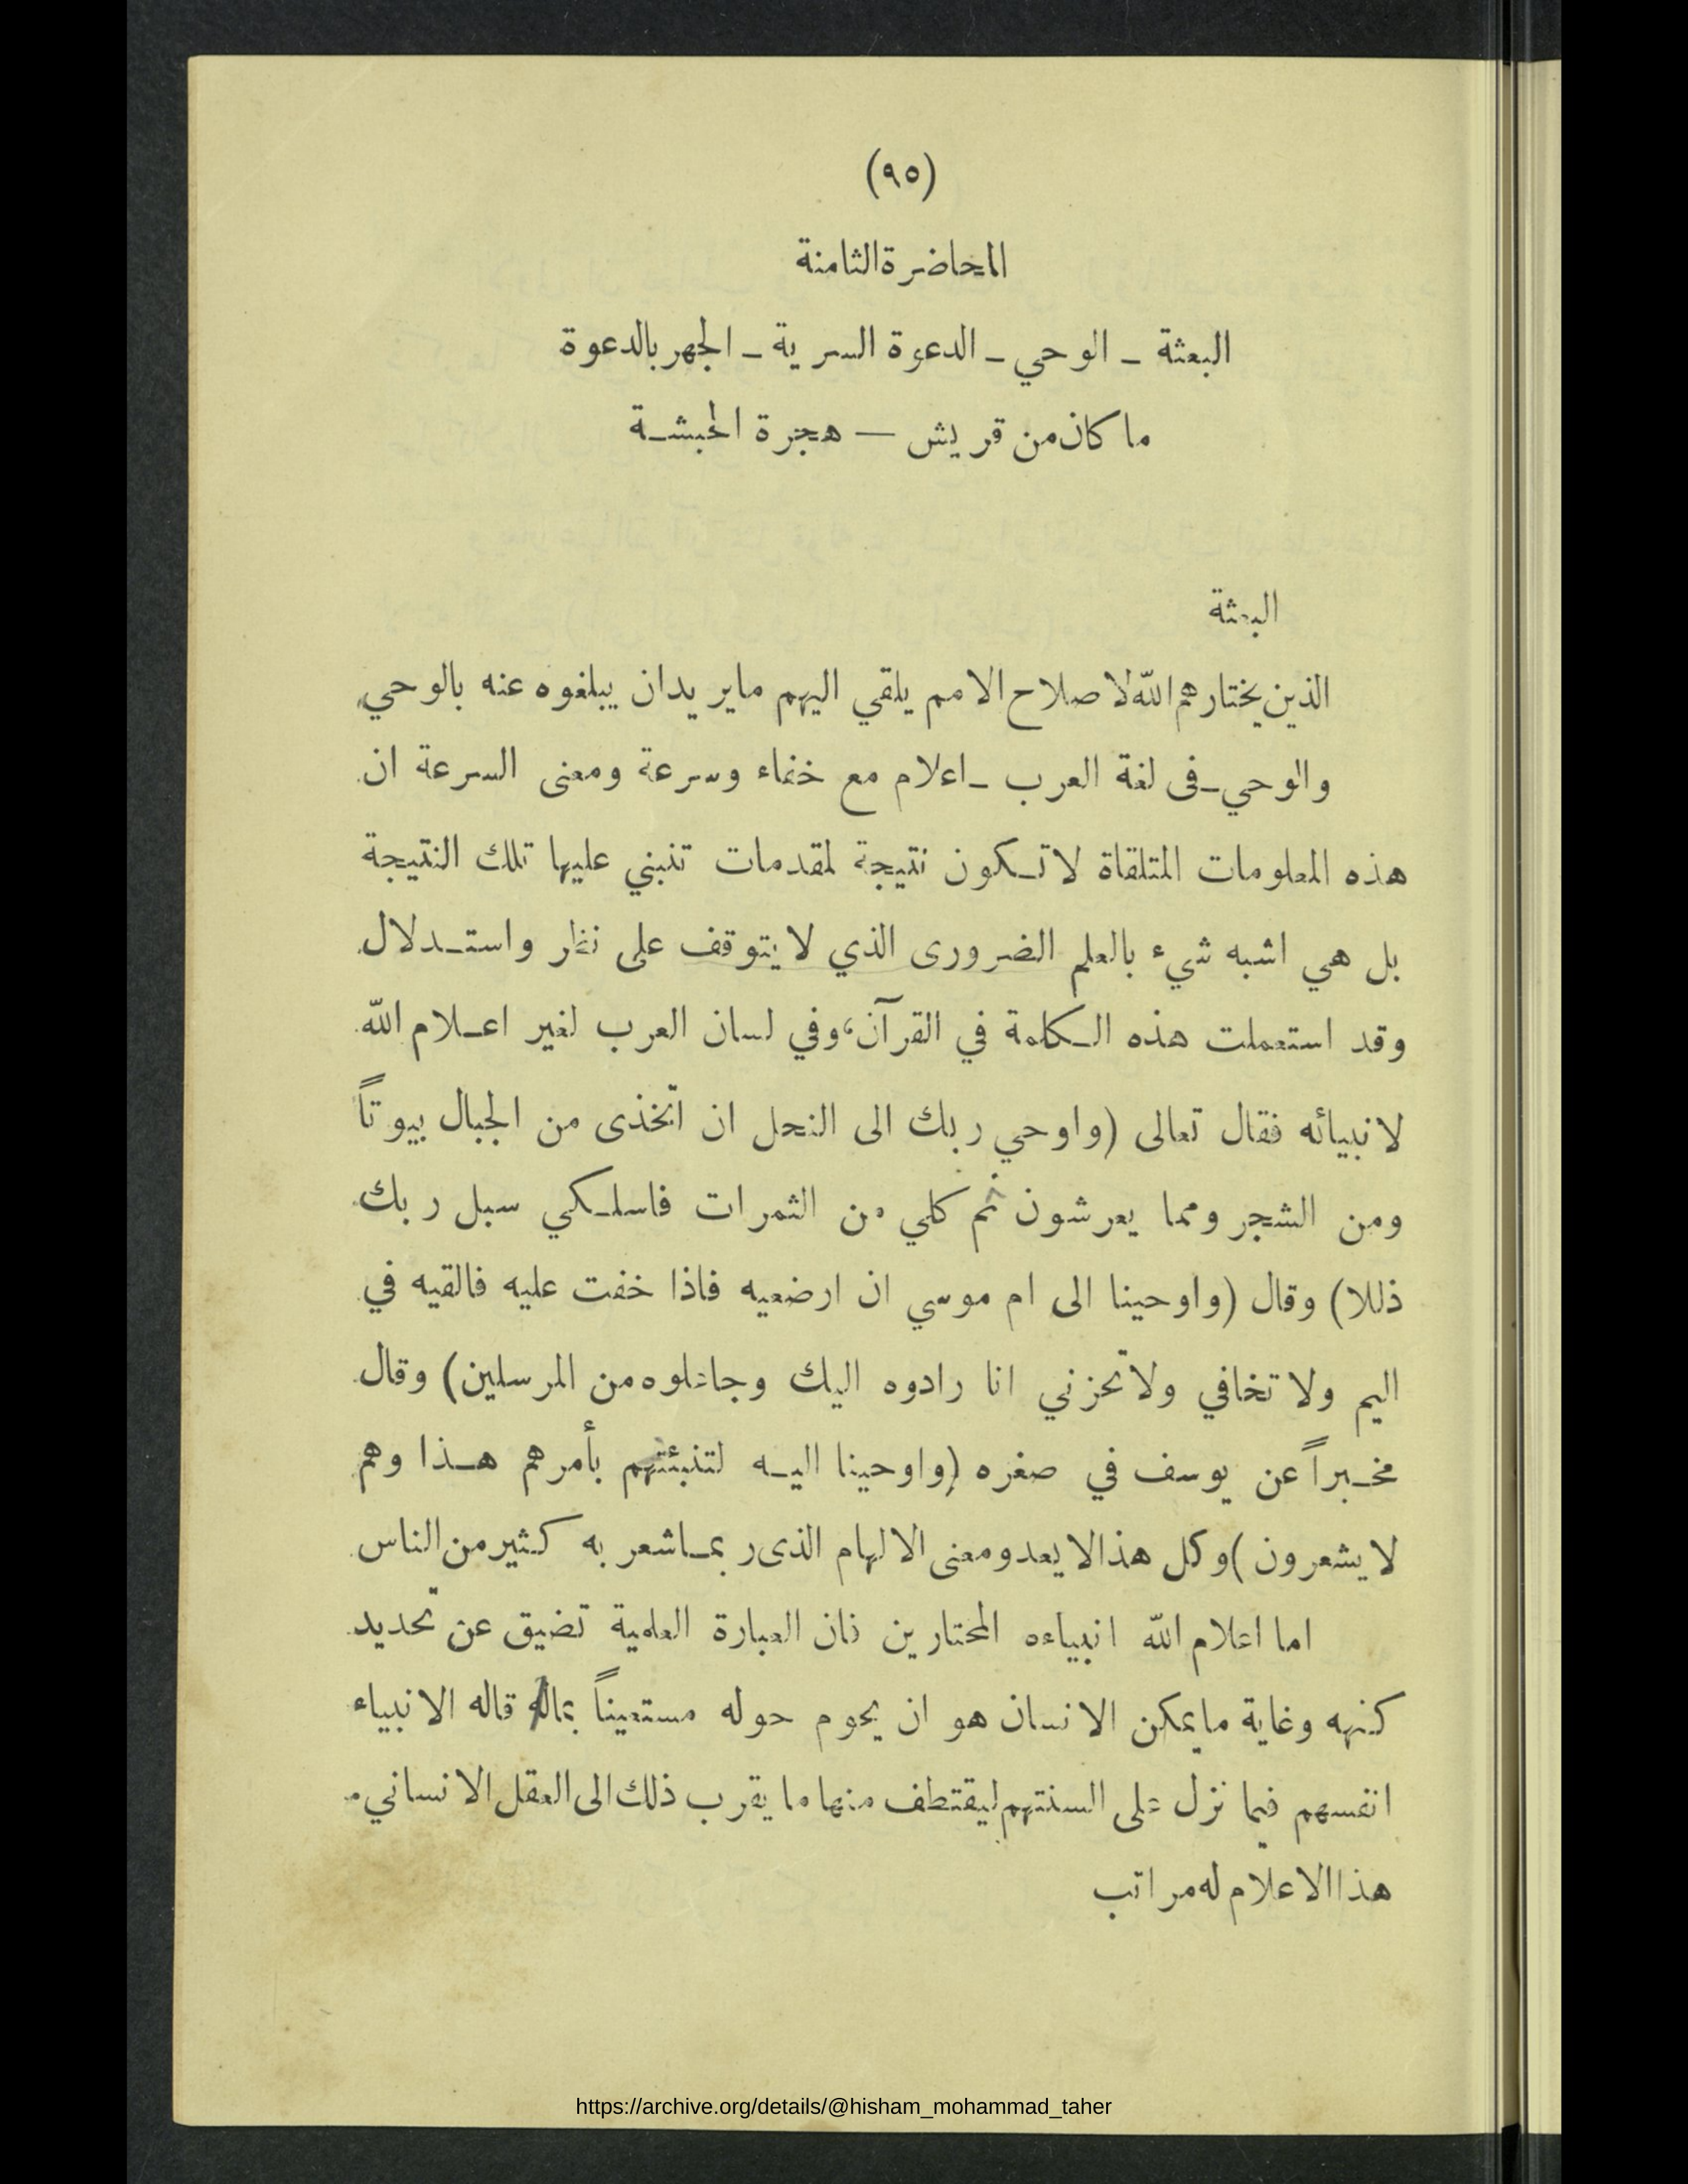 (٩٥)
المحاضرة الثامنة
البعثة ـ الوحي ـ الدعوة السرية ـ الجهر بالدعوة
ما كان من قريش — هجرة الحبشة
البعثة
الذين يختارهم الله لاصلاح الامم يلقي اليهم مايريدان يبلغوه عنه بالوحي
والوحي ـ فى لغة العرب ـ اعلام مع خفاء وسرعة ومعنى السرعة ان
هذه المعلومات المتلقاة لاتكون نتيجة لمقدمات تنبني عليها تلك النتيجة
بل هي اشبه شيء بالعلم الضرورى الذي لايتوقف على نظر واستدلال
وقد استعملت هذه الكلمة في القرآن، وفي لسان العرب لغير اعلام الله
لانبيائه فقال تعالى (واوحي ربك الى النحل ان اتخذى من الجبال بيوتاً
ومن الشجر ومما يعرشون ثم كلي من الثمرات فاسلكي سبل ربك
ذللا) وقال (واوحينا الى ام موسي ان ارضعيه فاذا خفت عليه فالقيه في
اليم ولا تخافي ولاتحزني انا رادوه اليك وجاعلوه من المرسلين) وقال
مخبراً عن يوسف في صغره (واوحينا اليه لتنبئنهم بأمرهم هذا وهم
لايشعرون) وكل هذا لا يعدو معنى الالهام الذى ربما شعر به كثير من الناس
اما اعلام الله انبياءه المختارين فان العبارة العلمية تضيق عن تحديد
كنهه وغاية مايمكن الانسان هو ان يحوم حوله مستعيناً قاله الانبياء
انفسهم فيما نزل على السنتهم ليقتطف منها ما يقرب ذلك الى العقل الانساني.
هذا الاعلام له مراتب
https://archive.org/details/@hisham_mohammad_taher